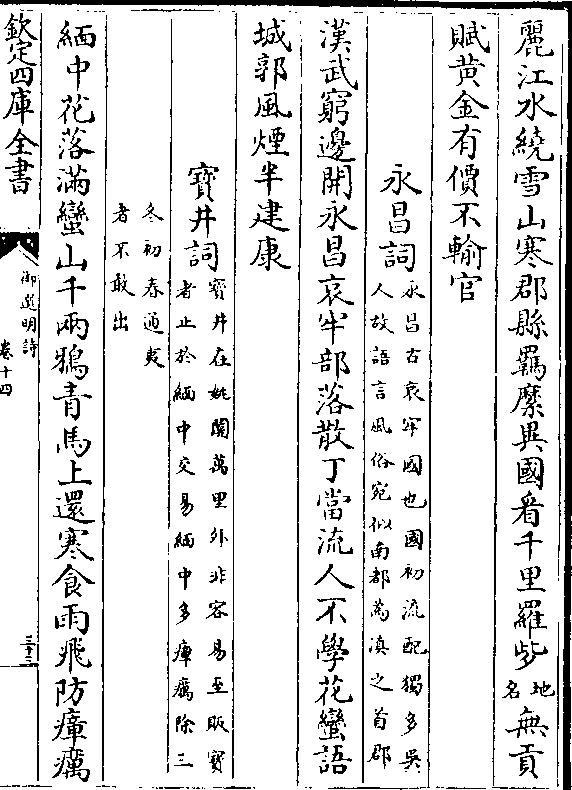 麗江水繞雪山寒郡縣羈縻異國看千里羅㱔地名無貢
賦黃金有價不輸官
永昌詞永昌古哀牢國也國初流配獨多吳
人故語言風俗宛似南都為滇之首郡
漢武窮邊開永昌哀牢部落散丁當流人不學花蠻語
城郭風煙半建康
寶井詞寶井在姚關萬里外非容易至販寶
者止於緬中交易緬中多瘴癘除三
冬初春通夷
者不敢出
緬中花落滿蠻山千兩鴉青馬上還寒食雨飛防瘴癘
欽定四庫全書
御選明詩
卷十四
三十三